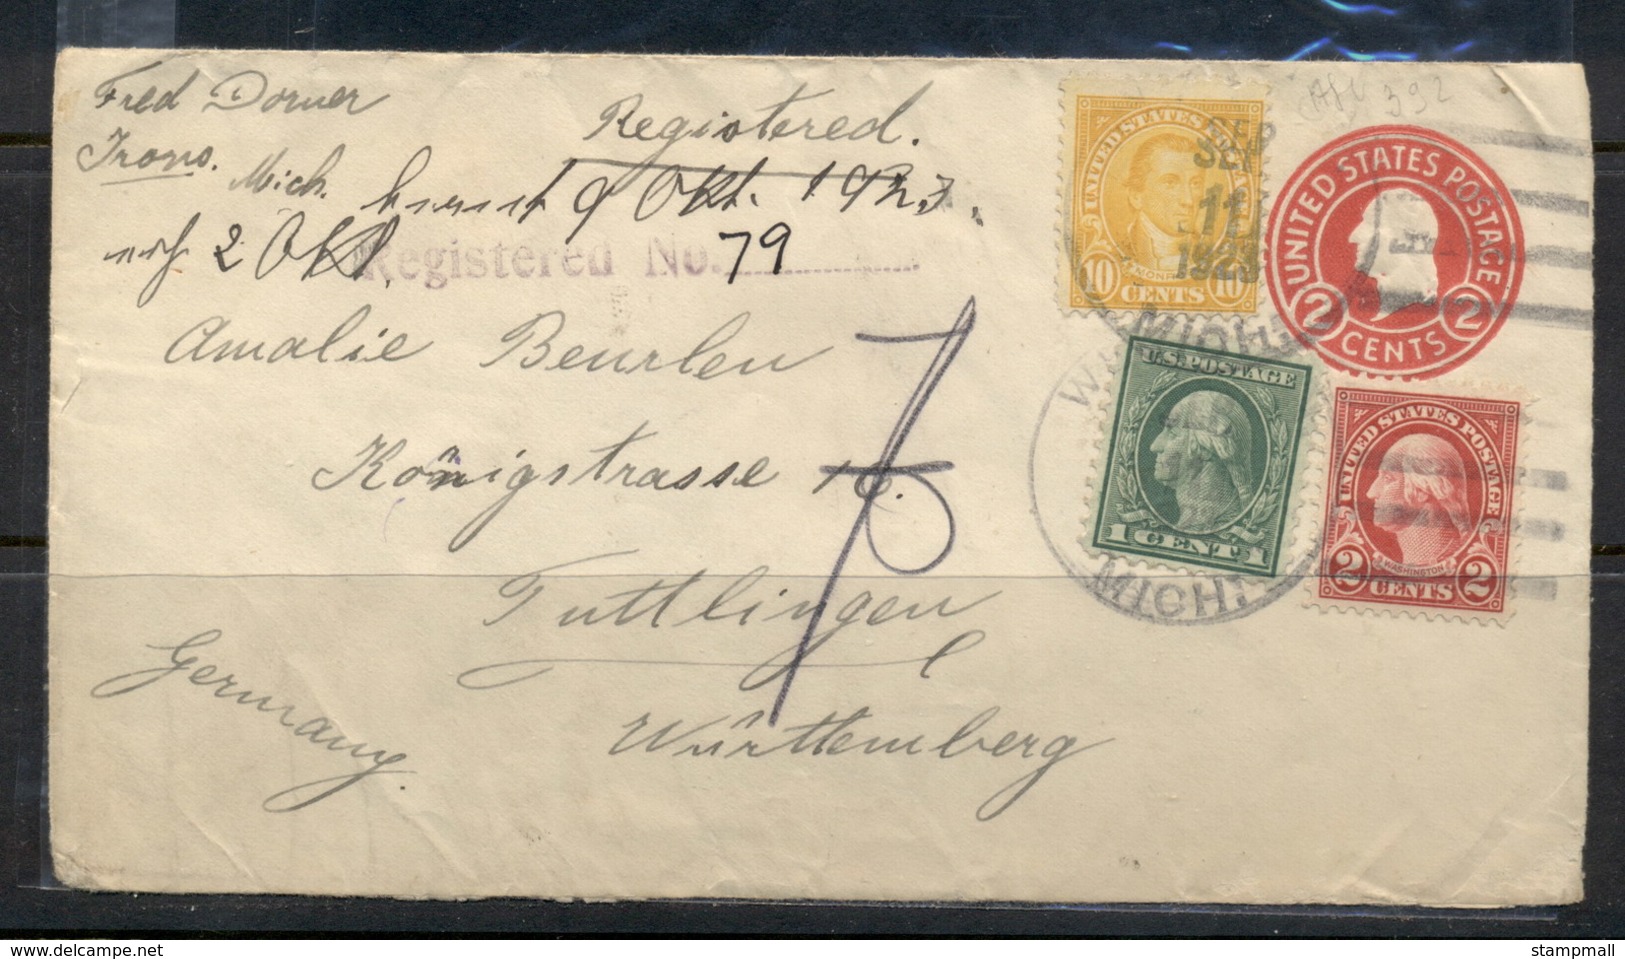 Fred Dorner
Trons.
Mich.
Registered.
9 Okt. 1923.
2 Okt.
Registered No. 79
Amalie Beurlen
Königstrasse 10.
Tuttlingen
Württemberg
Germany.
392
UNITED STATES POSTAGE
MONROE
10 CENTS 10
SEP
SEP
11
1923
MICH.
MICH.
U.S. POSTAGE
1 CENT 1
UNITED STATES POSTAGE
2 CENTS 2
UNITED STATES POSTAGE
WASHINGTON
2 CENTS 2
stampmall
delcampe.net